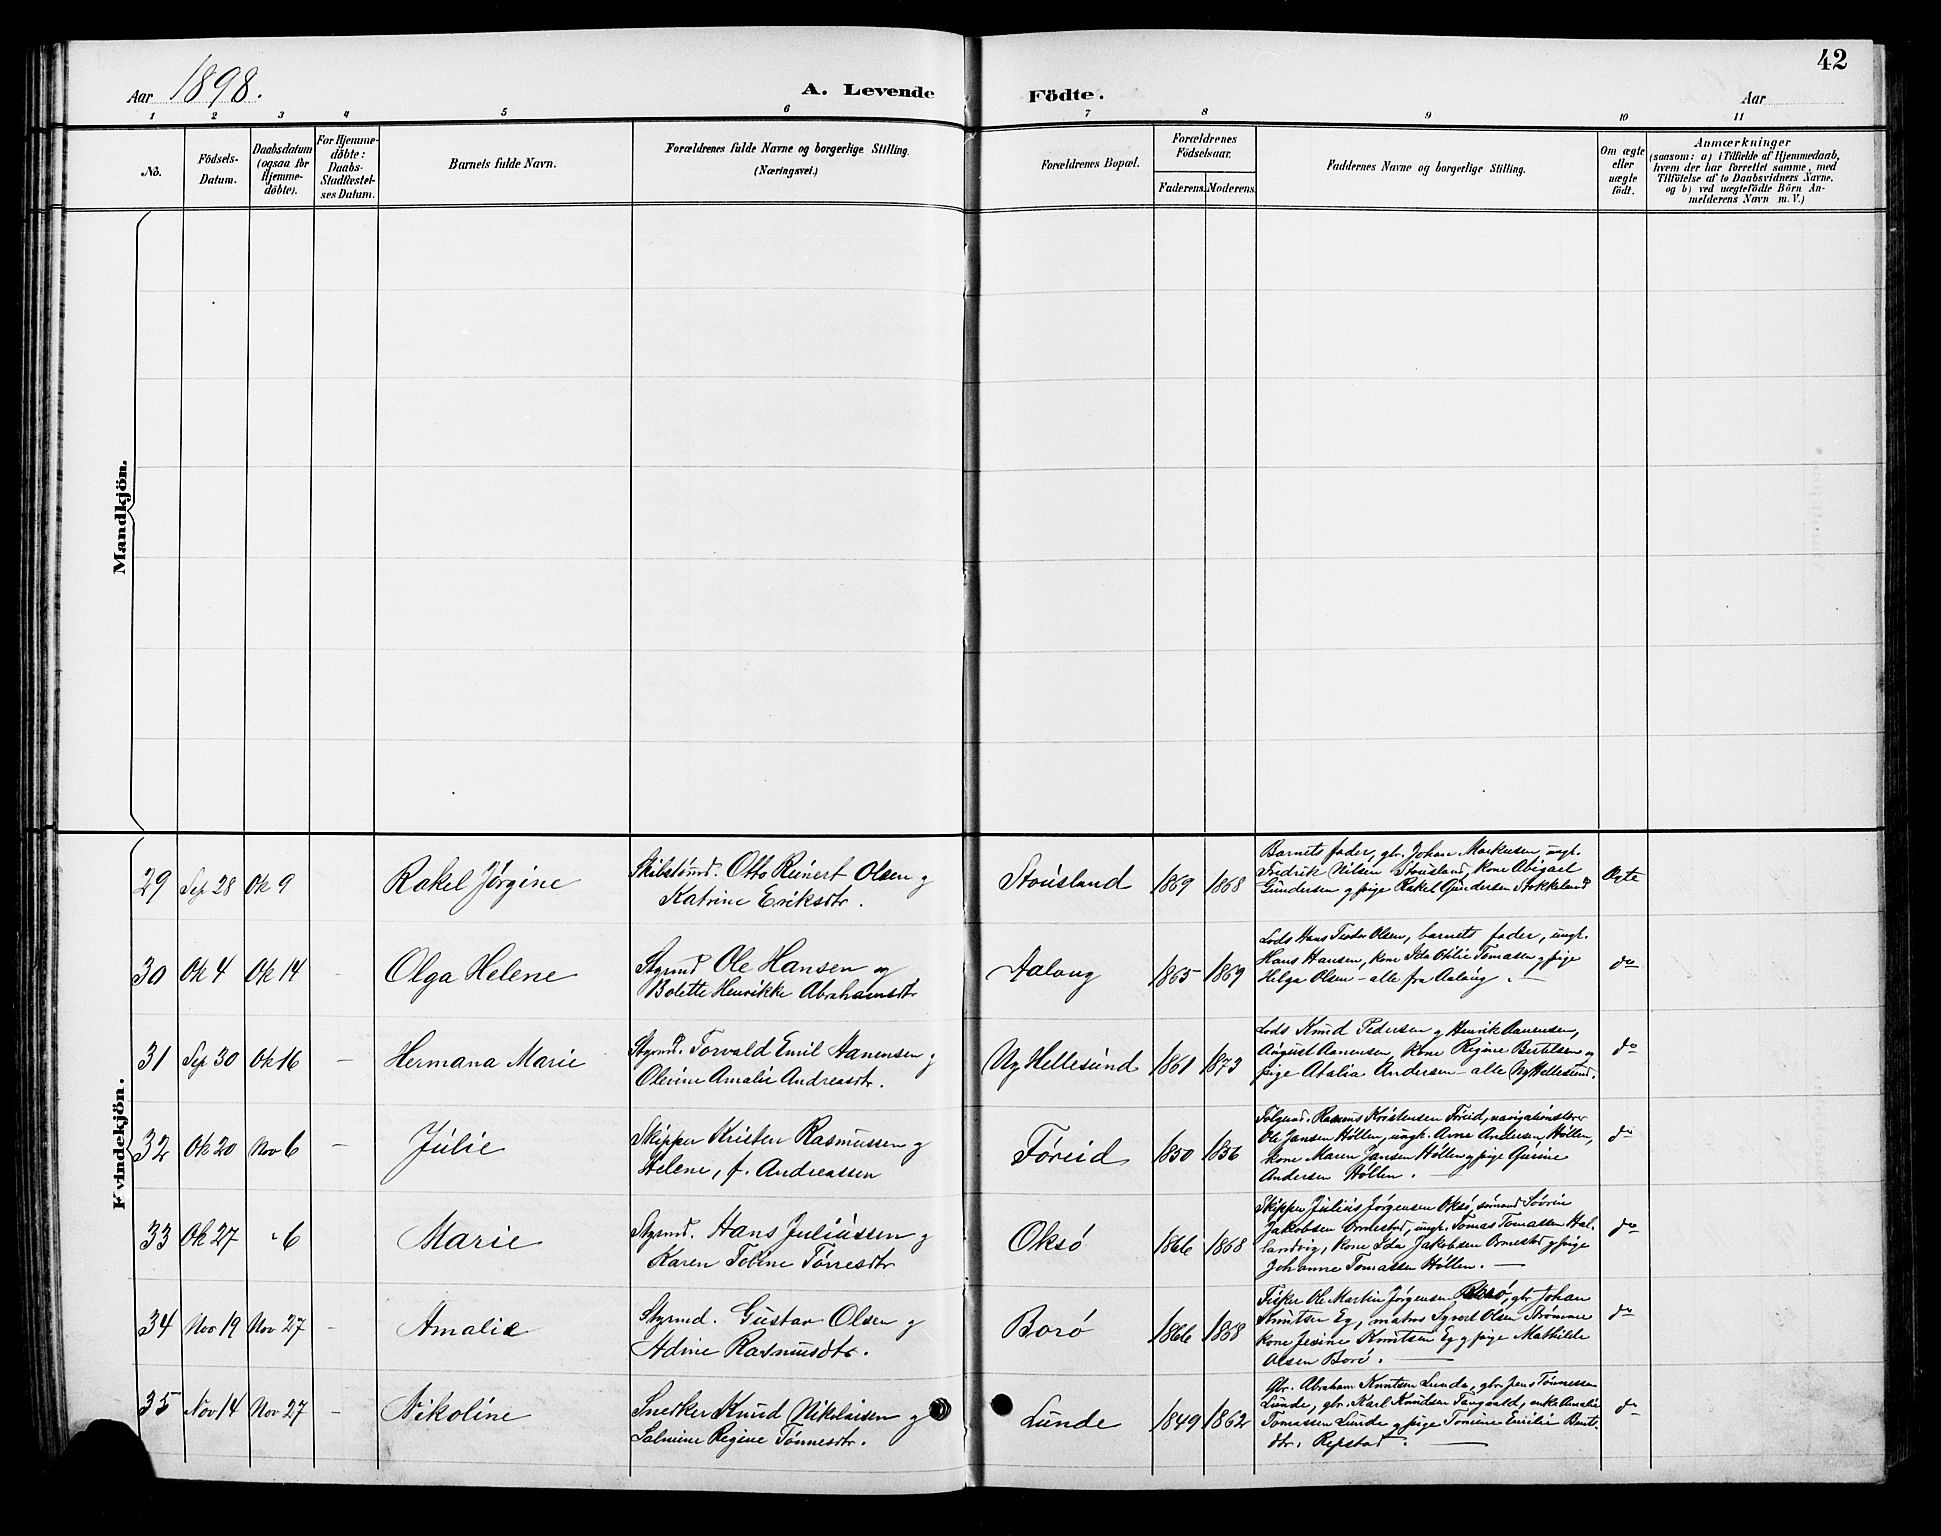 42
Aar 1898.
A. Levende Födte.
Aar
1 2 3 4 5 6 7 8 9 10 11
No.
Födsels-
Datum.
Daabsdatum
(ogsaa for
Hjemme-
döbte).
For Hjemme-
döbte:
Daabs-
Stadfæstel-
ses Datum.
Barnets fulde Navn.
Forældrenes fulde Navne og borgerlige Stilling.
(Næringsvei.)
Forældrenes Bopæl.
Forældrenes
Födselsaar.
Faderens. Moderens.
Faddernes Navne og borgerlige Stilling.
Om ægte
eller
uægte
födt.
Anmærkninger
(saasom: a) i Tilfælde af Hjemmedaab,
hvem der har forrettet samme, med
Tilföielse af to Daabsvidners Navne,
og b) ved uægtefödte Börn An-
melderens Navn m. V.)
Mandkjön.
Kvindekjön.
29 Sep 28 Ok 9
Rakel Jørgine
Skibstømd. Otto Reinert Olsen g
Katrine Eriksdtr.
Stousland 1869 1868
Barnets fader, gbr. Johan Markusen, ungk.
Fredrik Nilsen Stousland, kone Abigael
Gundersen g pige Rakel Gundersen Stokkeland
Ægte
30 Ok 4 Ok 14 -
Olga Helene
Styrmd Ole Hansen og
Bolette Henrikke Abrahamsdtr
Aalaug 1865 1869
Lods Hans Teodor Olsen, barnets fader, ungk.
Hans Hansen, kone Ida Otilie Tomasen g pige
Helga Olsen - alle fra Aalaug. -
do
31 Sep 30 Ok 16 -
Hermana Marie
Styrmd. Torvald Emil Aanensen g
Olevine Amalie Andreasdtr.
Ny Hellesund 1861 1873
Lods Knud Pedersen g Henrik Aanensen,
August Aanensen, kone Regine Bertelsen og
pige Atalia Andersen - alle Ny Hellesund.
do
32 Ok 20 Nov 6 -
Julie
Skipper Kristen Rasmussen g
Helene, f. Andreassen
Føreid 1850 1856
Rasmus Kristensen Føreid, navigationslærer
Ole Jansen Høllen, ungk. Arne Andersen Høllen,
kone Maren Jansen Høllen g pige Gurine
Andersen Høllen. -
do
33 Ok 27 " 6
Marie
Styrmd. Hans Juliussen g
Karen Tobine Tørresdtr
Oksø 1866 1868
Skipper Julius Jørgensen Oksø, sømand Søren
Jakobsen Ormestad, ungk. Tomas Tomassen Hal-
landvig, kone Ida Jakobsen Ormestad g pige
Johanne Tomassen Høllen. -
do
34 Nov 19 Nov 27 -
Amalie
Styrmd. Gustav Olsen g
Adine Rasmusdtr.
Borø 1866 1868
Fisker Ole Martin Jørgensen Borø, gbr. Johan
Knutsen Eg, matros Syvert Olsen Strømme
kone Jesine Knutsen Eg g pige Mathilde
Olsen Borø. -
do
35 Nov 14 Nov 27 -
Nikoline
Snedker Knud Nikolaisen g
Salmine Regine Tønnesdtr.
Lunde 1849 1862
Gbr. Abraham Knutsen Lunde, gbr. Jens Tønnessen
Lunde, gbr. Karl Knudsen Tangvald, enke Amalie
Tomassen Lunde g pige Tomine Emilie Bent-
dtr. Repstad. -
do